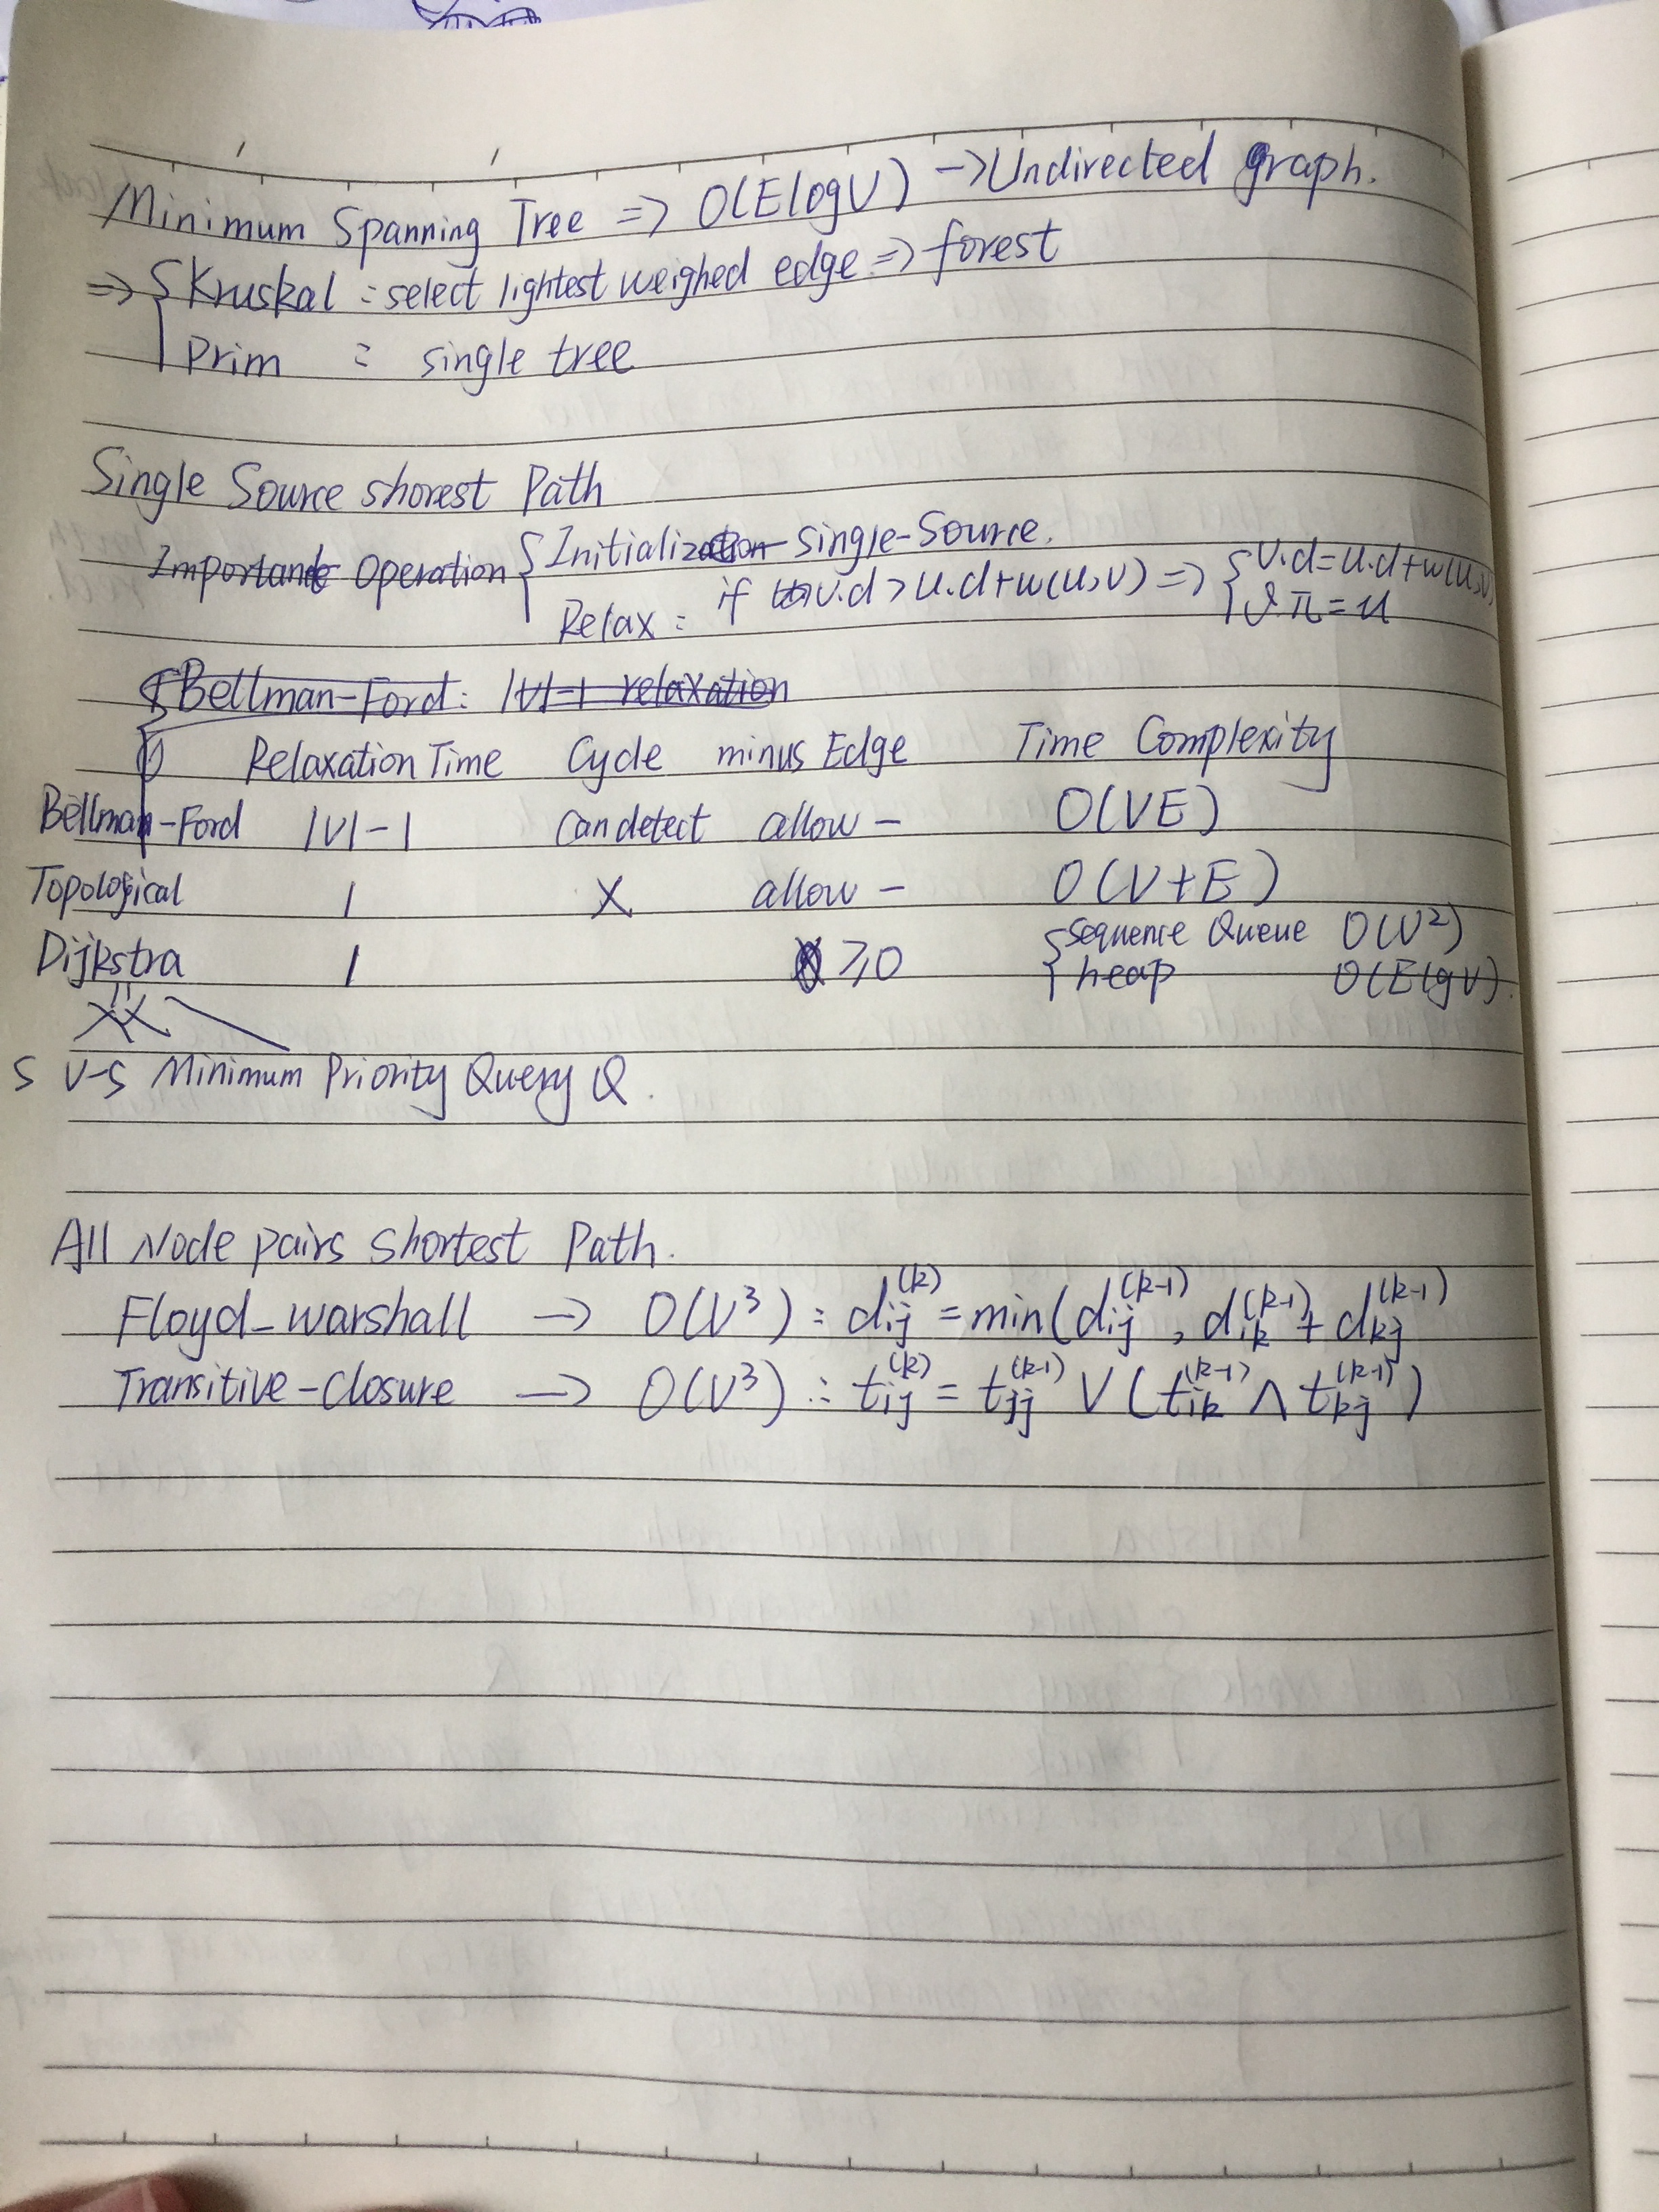 Minimum Spanning Tree => O(ElogV) -> Undirected graph.
=> { Kruskal : select lightest weighed edge => forest
Prim : single tree
Single Source shorest Path
Important Operation { Initialization-Single-Source.
Relax : if v.d > u.d + w(u,v) => { v.d = u.d + w(u,v)
v.π = u
Bellman-Ford: |V|-1 relaxation
Relaxation Time Cycle minus Edge Time Complexity
Bellman-Ford |V|-1 Can detect allow - O(VE)
Topological 1 X allow - O(V+E)
Dijkstra 1 ≥0 { sequence Queue O(V²)
heap O(ElgV).
S V-S Minimum Priority Query Q.
All Node pairs Shortest Path.
Floyd-warshall -> O(V³) : dij^(k) = min(dij^(k-1), dik^(k-1) + dkj^(k-1)
Transitive-Closure -> O(V³) : tij^(k) = tjj^(k-1) ∨ (tik^(k-1) ∧ tkj^(k-1))